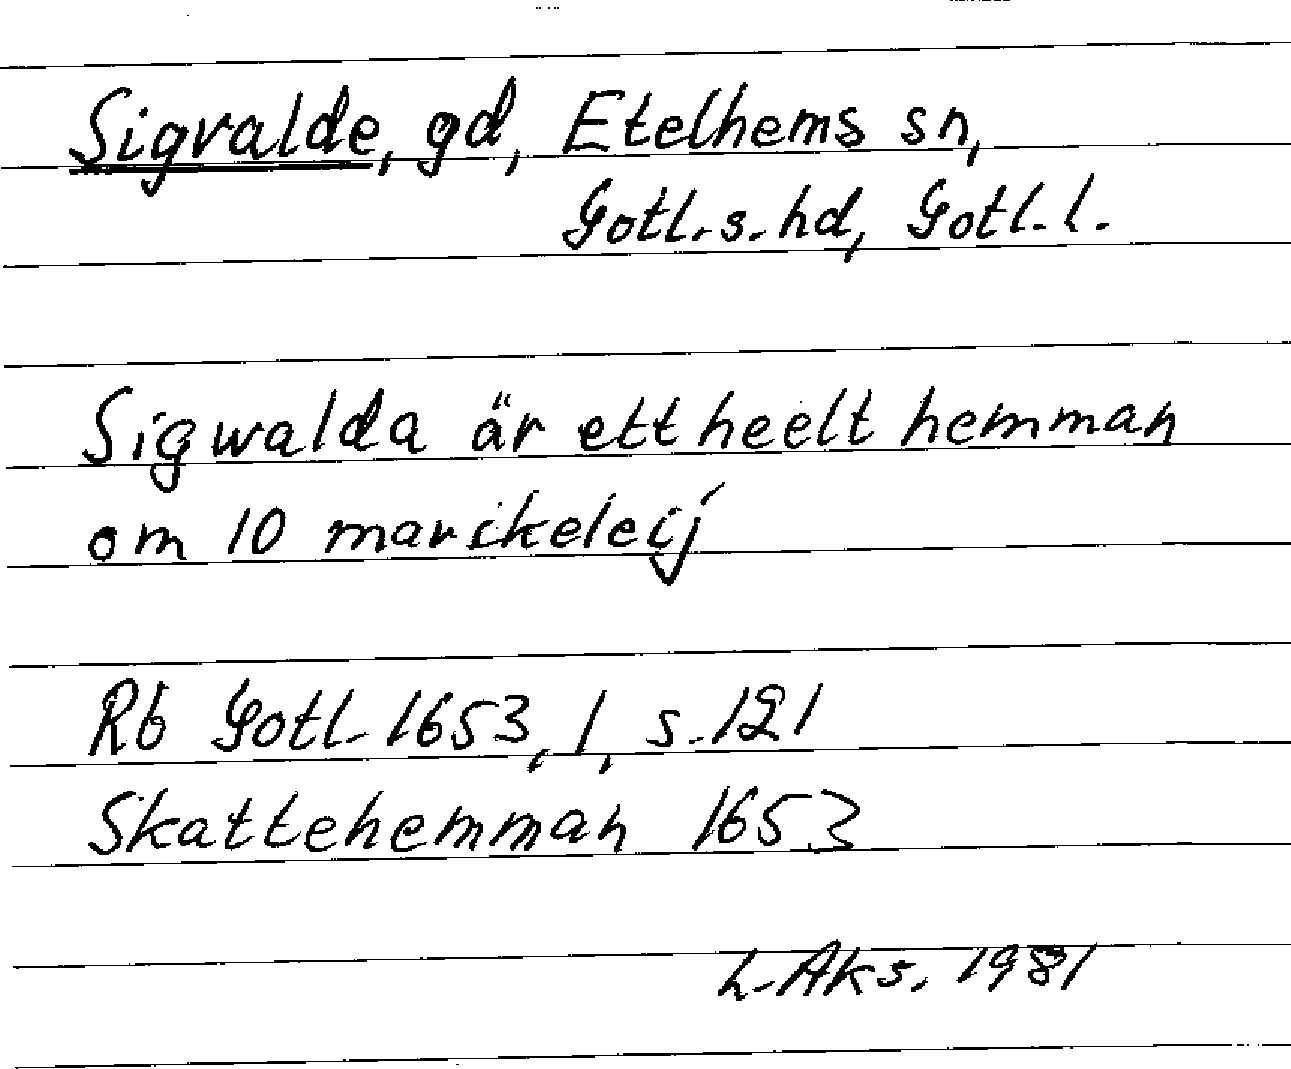 Sigvalde, gd, Etelhems sn,
Gotl. s. hd, Gotl. l.
Sigwalda är ett heelt hemman
om 10 marckeleij
Rb Gotl. 1653, 1, s. 121
Skattehemman 1653
L. Aks. 1981